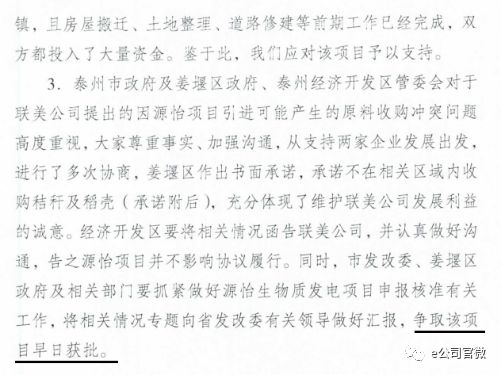 镇，且房屋搬迁、土地整理、道路修建等前期工作已经完成，双
方都投入了大量资金。鉴于此，我们应对该项目予以支持。
3．泰州市政府及姜堰区政府、泰州经济开发区管委会对于
联美公司提出的因源怡项目引进可能产生的原料收购冲突问题
高度重视，大家尊重事实、加强沟通，从支持两家企业发展出发，
进行了多次协商，姜堰区作出书面承诺，承诺不在相关区域内收
购秸秆及稻壳（承诺附后），充分体现了维护联美公司发展利益
的诚意。经济开发区要将相关情况函告联美公司，并认真做好沟
通，告之源怡项目并不影响协议履行。同时，市发改委、姜堰区
政府及相关部门要抓紧做好源怡生物质发电项目申报核准有关
工作，将相关情况专题向省发改委有关领导做好汇报，争取该项
目早日获批。
e公司官微